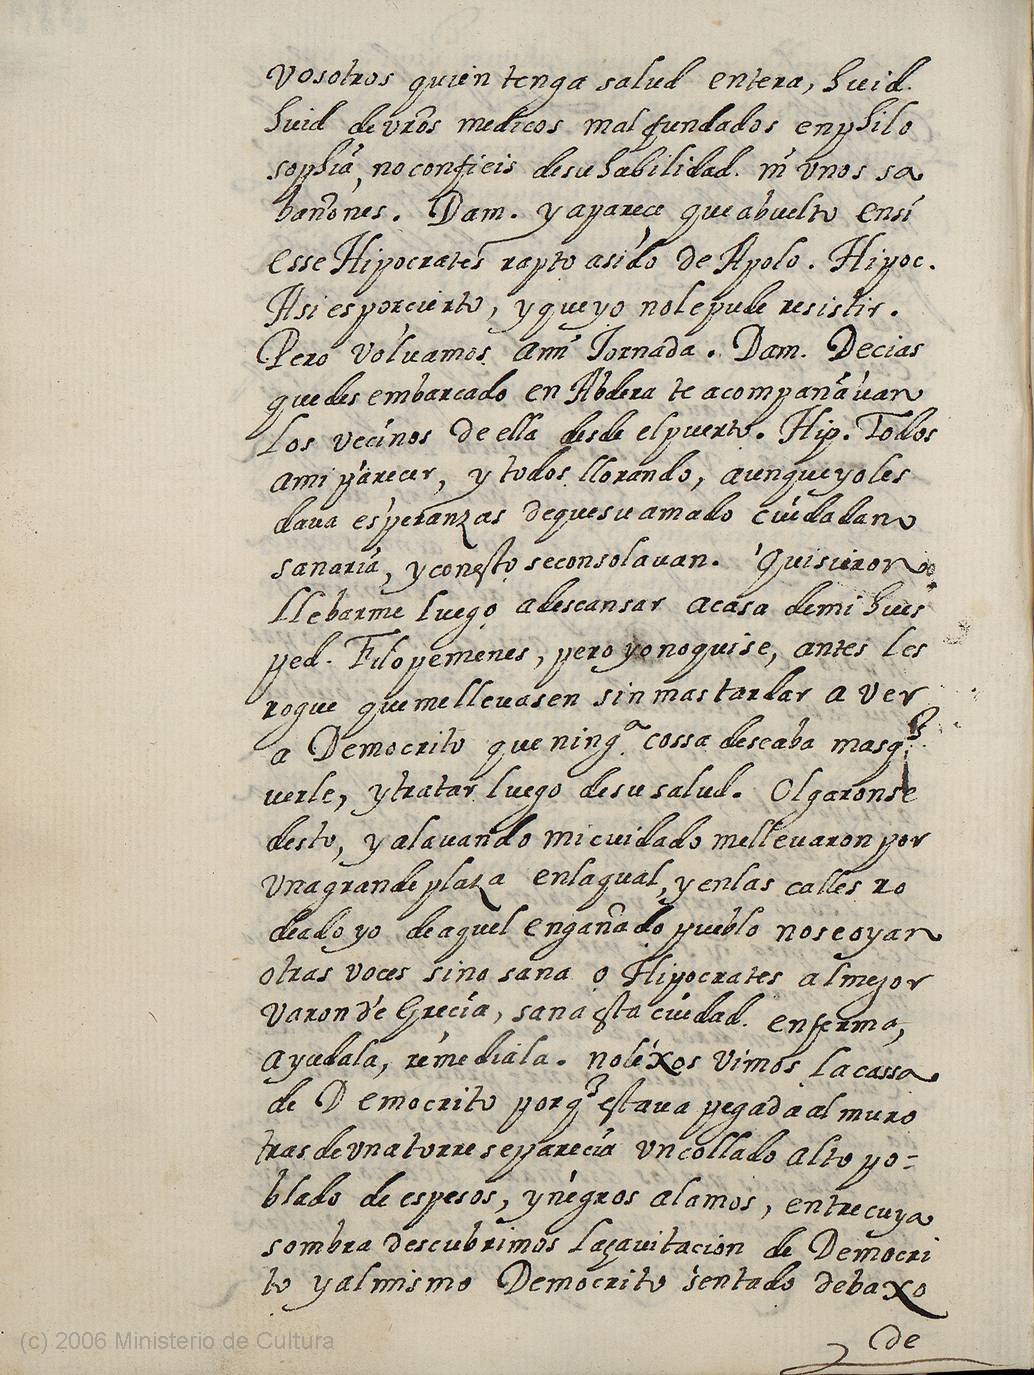 vosotros quien tenga salud entera, huid.
huid de vrõs medicos mal fundados en philo
sophia, no confieis de su habilidad. ni unos sa
bañones. Dam. y aparece que a buelto en sí
esse Hipocrates rapto asido de Apolo. Hipoc.
Asi es por cierto, y que yo no le pude resistir.
Pero volvamos a mi Jornada. Dam. Decias
que des embarcado en Abdera te acompañavan
los vecinos de ella desde el puerto. Hip. Todos
a mi parecer, y todos llorando, aunque yo les
dava esperanzas de que su amado ciudadano
sanaria, y con esto se consolavan. Quisieron
llebarme luego a descansar a casa de mi hues
ped. Filopemenes, pero yo no quise, antes les
rogue que me llevasen sin mas tardar a ver
a Democrito que ningª cossa deseaba mas q̃
verle, y tratar luego de su salud. Olgaronse
desto, y alavando mi cuidado me llevaron por
una grande plaza en la qual, y en las calles ro
deado yo de aquel engañado pueblo no se oyan
otras voces sino sana o Hipocrates al mejor
varon de Grecia, sana esta ciudad. enferma,
ayudala, remediala. no lexos vimos la cassa
de Democrito porq̃ estava pegada al muro
tras de una torre se parecia un collado alto po=
blado de espesos, y negros alamos, entre cuya
sombra descubrimos la avitacion de Democri
to y al mismo Democrito sentado debaxo
de
(c) 2006 Ministerio de Cultura